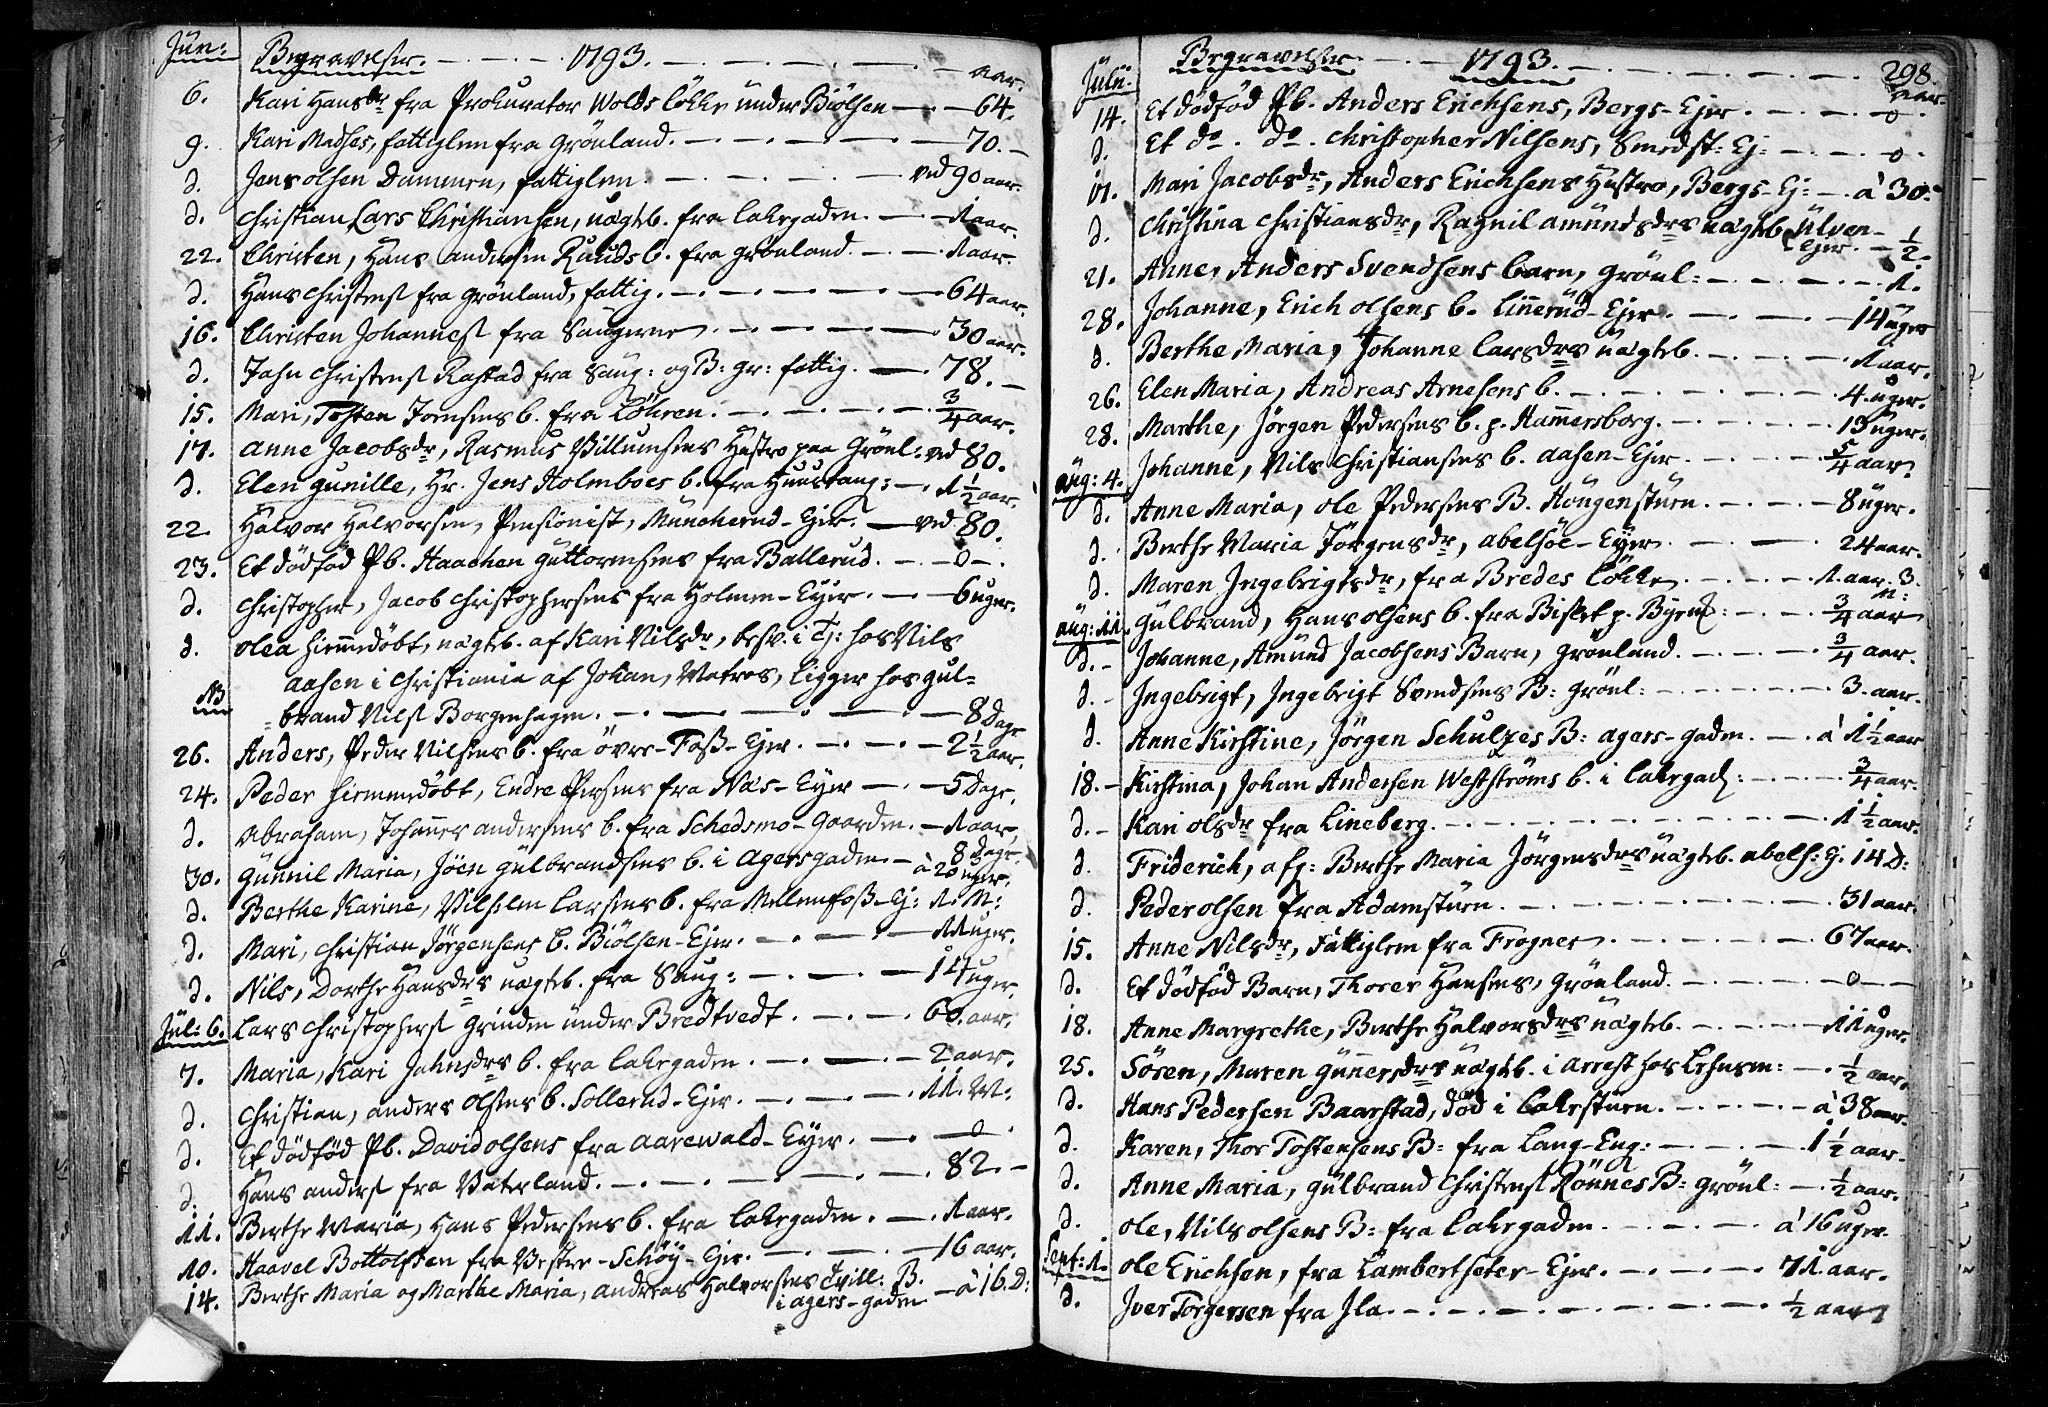 Jun: Begravelser. 1793. aar.
6. Kari Hansdr fra Prokurator Wolds Løkke under Biølsen 64.
9. Kari Madses, fattiglem fra Grönland. 70.
d. Jens olsen Dammen, fattiglem ved 90 aar.
d. Christian Lars Christiansen, uægteb. fra Lakegaden. 1 aar.
22. Christen, Hans andersen Ruuds b. fra Grönland. 1 aar.
d. Hans Christens fra Grönland, fattig. 64 aar.
16. Christen Johannes fra Saugerne 30 aar.
d. John Christens Rastad fra Saug: og B: gr: fattig. 78.
15. Mari, Tosten Jornsens b. fra Löhren. 3/4 aar.
17. Anne Jacobsdr, Rasmus Villumsens Hustro paa Grönl: ved 80.
d. Elen Gunille, Hr. Jens Holmboes b. fra Huustang: 1 1/2 aar.
22. Halvor Halvorsen, Pensionist, Munkerud-Ejer. ved 80.
23. Et dödfød Pb. Haachen Guttormsens fra Ballerud. 0.
d. Christopher, Jacob Christophersens fra Holmen-Eyer. 6 uger.
d. Olea hiemmedöbt, uægteb. af Kari Nilsdr, besv. i Tj: hos Nils
Aasen i Christiania af Johan, Matros, ligger hos Gul=
NB =brand Nils Borgenhagen. 8 Dage
26. Anders, Peder Nilsens b. fra övre-Foss-Ejer. 2 1/2 aar.
24. Peder hiemmedöbt, Endre Persens fra Næs-Eyer 5 Dage.
d. Abraham, Johannes andersens b. fra Schedsmo-Gaarden. 1 aar, 8 dage.
30. Gunnil Maria, Jöen Gulbrandsens b. i Agersgaden à 20 uger.
d. Berthe Karine, Vilhelm Larsens b. fra Mellemfoss-Ej: 1. M:
d. Mari, Christian Jörgensens b. Biölsen-Ejer. 11 uger.
d. Nils, Dorthe Hansdrs uægteb. fra Saug: 14 uger.
Jul: 6. Lars Christophers Grinden under Bredtvedt. 60. aar.
7. Maria, Kari Johnsdrs b. fra Lakegaden. 2 aar.
d. Christian, anders Olsens b. Sollerud-Ejer. 11. M:
d. Et dödfød Pb. David olsens fra Aarewald-Eyer. 0.
d. Hans anders fra Vaterland. 82.
11. Berthe Maria, Hans Pedersens b. fra Lakegaden. 1 aar.
10. Haavel Bottolfsen fra Vestre-Schöy-Ejer. 16 aar.
14. Berthe Maria og Marthe Maria, Andreas Halvorsens Tvill: B. à 16. D:
i agers-gaden
Julii: Begravelser. 1793. 298.
aar.
14. Et dödfød Pb. Anders Erichsens, Bergs-Ejer. 0.
d. Et do. do. Christopher Nilsens, Smedst: Ej: 0.
17. Mari Jacobsdr, Anders Erichsens Hustro, Bergs-Ej: à 30.
d. Christina Christiansdr, Ragnil Amundsdrs uægteb. Ulven-Ejer. 1/2.
21. Anne, Anders Svendsens barn, Grönl: 1.
28. Johanne, Erich Olsens b. Linnerud-Ejer. 14 uger
d. Berthe Maria, Johanne Larsdrs uægteb. 1 aar.
26. Elen Maria, Andreas Arnesens b. 4 uger.
28. Marthe, Jörgen Pedersens b. p. Hammersborg. 13 uger.
Aug: 4. Johanne, Nils Christiansens b. Aasen-Ejer. 5/4 aar.
d. Anne Maria, Ole Pedersens B. Hougenstuen. 8 uger.
d. Berthe Maria Jörgensdr, Abelsöe-Eyer. 24 aar.
d. Maren Ingebrigtsdr, fra Bredes Løkke. 1. aar. 3. M:
Aug: 11. Gulbrand, Hans Olsens b. fra Bislet p. Bymk: 3/4 aar
d. Johanne, Amund Jacobsens Barn, Grönland. 3/4 aar.
d. Ingebrigt, Ingebrigt Svendsens B: Grönl: 3. aar.
d. Anne Kirstine, Jörgen Schulzes B: agers-gaden. à 1 1/2 aar
18. Kirstina, Johan Andersen Weststrøms b. i Lakegad: 3/4 aar.
d. Kari Olsdr fra Lineberg. 1 1/2 aar.
d. Friderich, afg: Berthe Maria Jörgensdrs uægteb. Abels: Ej. 14 D:
d. Peder Olsen fra Adamstuen. 31 aar.
15. Anne Nilsdr, Fattiglem fra Frogner 67 aar.
d. Et dödfød Barn, Thorer Hansens, Grönland. 0
18. Anne Margrethe, Berthe Halvorsdrs uægteb. 11 uger.
25. Sören, Maren Gunersdrs uægteb. i Arrest hos Lehnsm: 1/2 aar.
d. Hans Pedersen Baarstad, död i Lakestuen. à 38 aar.
d. Karen, Thor Tostensens B: fra Lang-Eng: 1 1/2 aar.
d. Anne Maria, Gulbrand Christens Rönnes B: Grönl: 1/2 aar.
d. Ole, Nils Olsens B: fra Lakegaden. à 16 uger.
Sept: 1. Ole Erichsen, fra Lambertseter-Ejer. 71. aar.
d. Iver Torgersen fra Ila. 1/2 aar